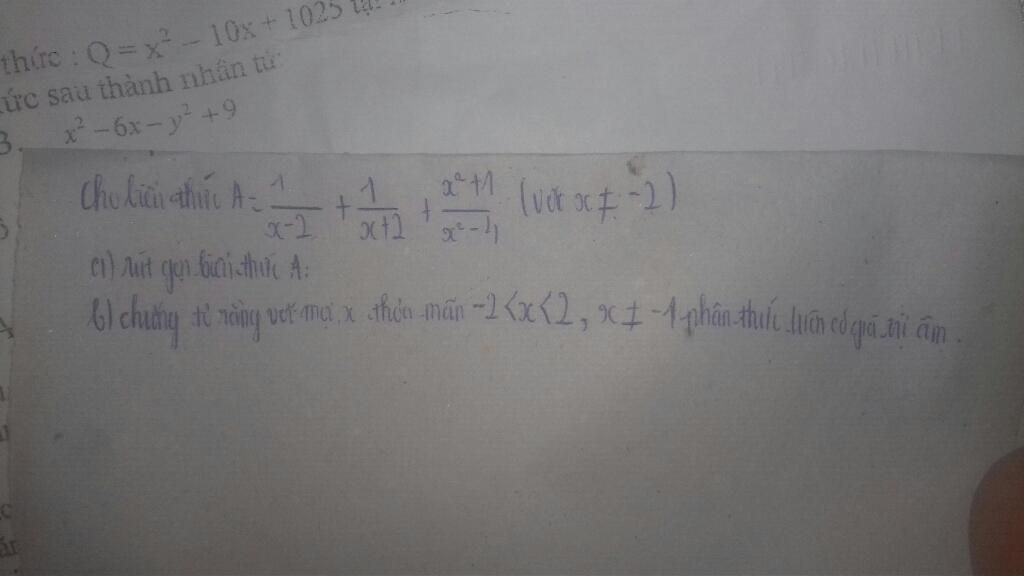 thức : Q = x² − 10x + 1025 tại
ức sau thành nhân tử:
3. x² − 6x − y² + 9
Cho biểu thức A = 1/(x-2) + 1/(x+2) + (x²+1)/(x²-4) (với x ≠ -2)
a) rút gọn biểu thức A:
b) chứng tỏ rằng với mọi x thỏa mãn -2 < x < 2, x ≠ -1 phân thức luôn có giá trị âm.